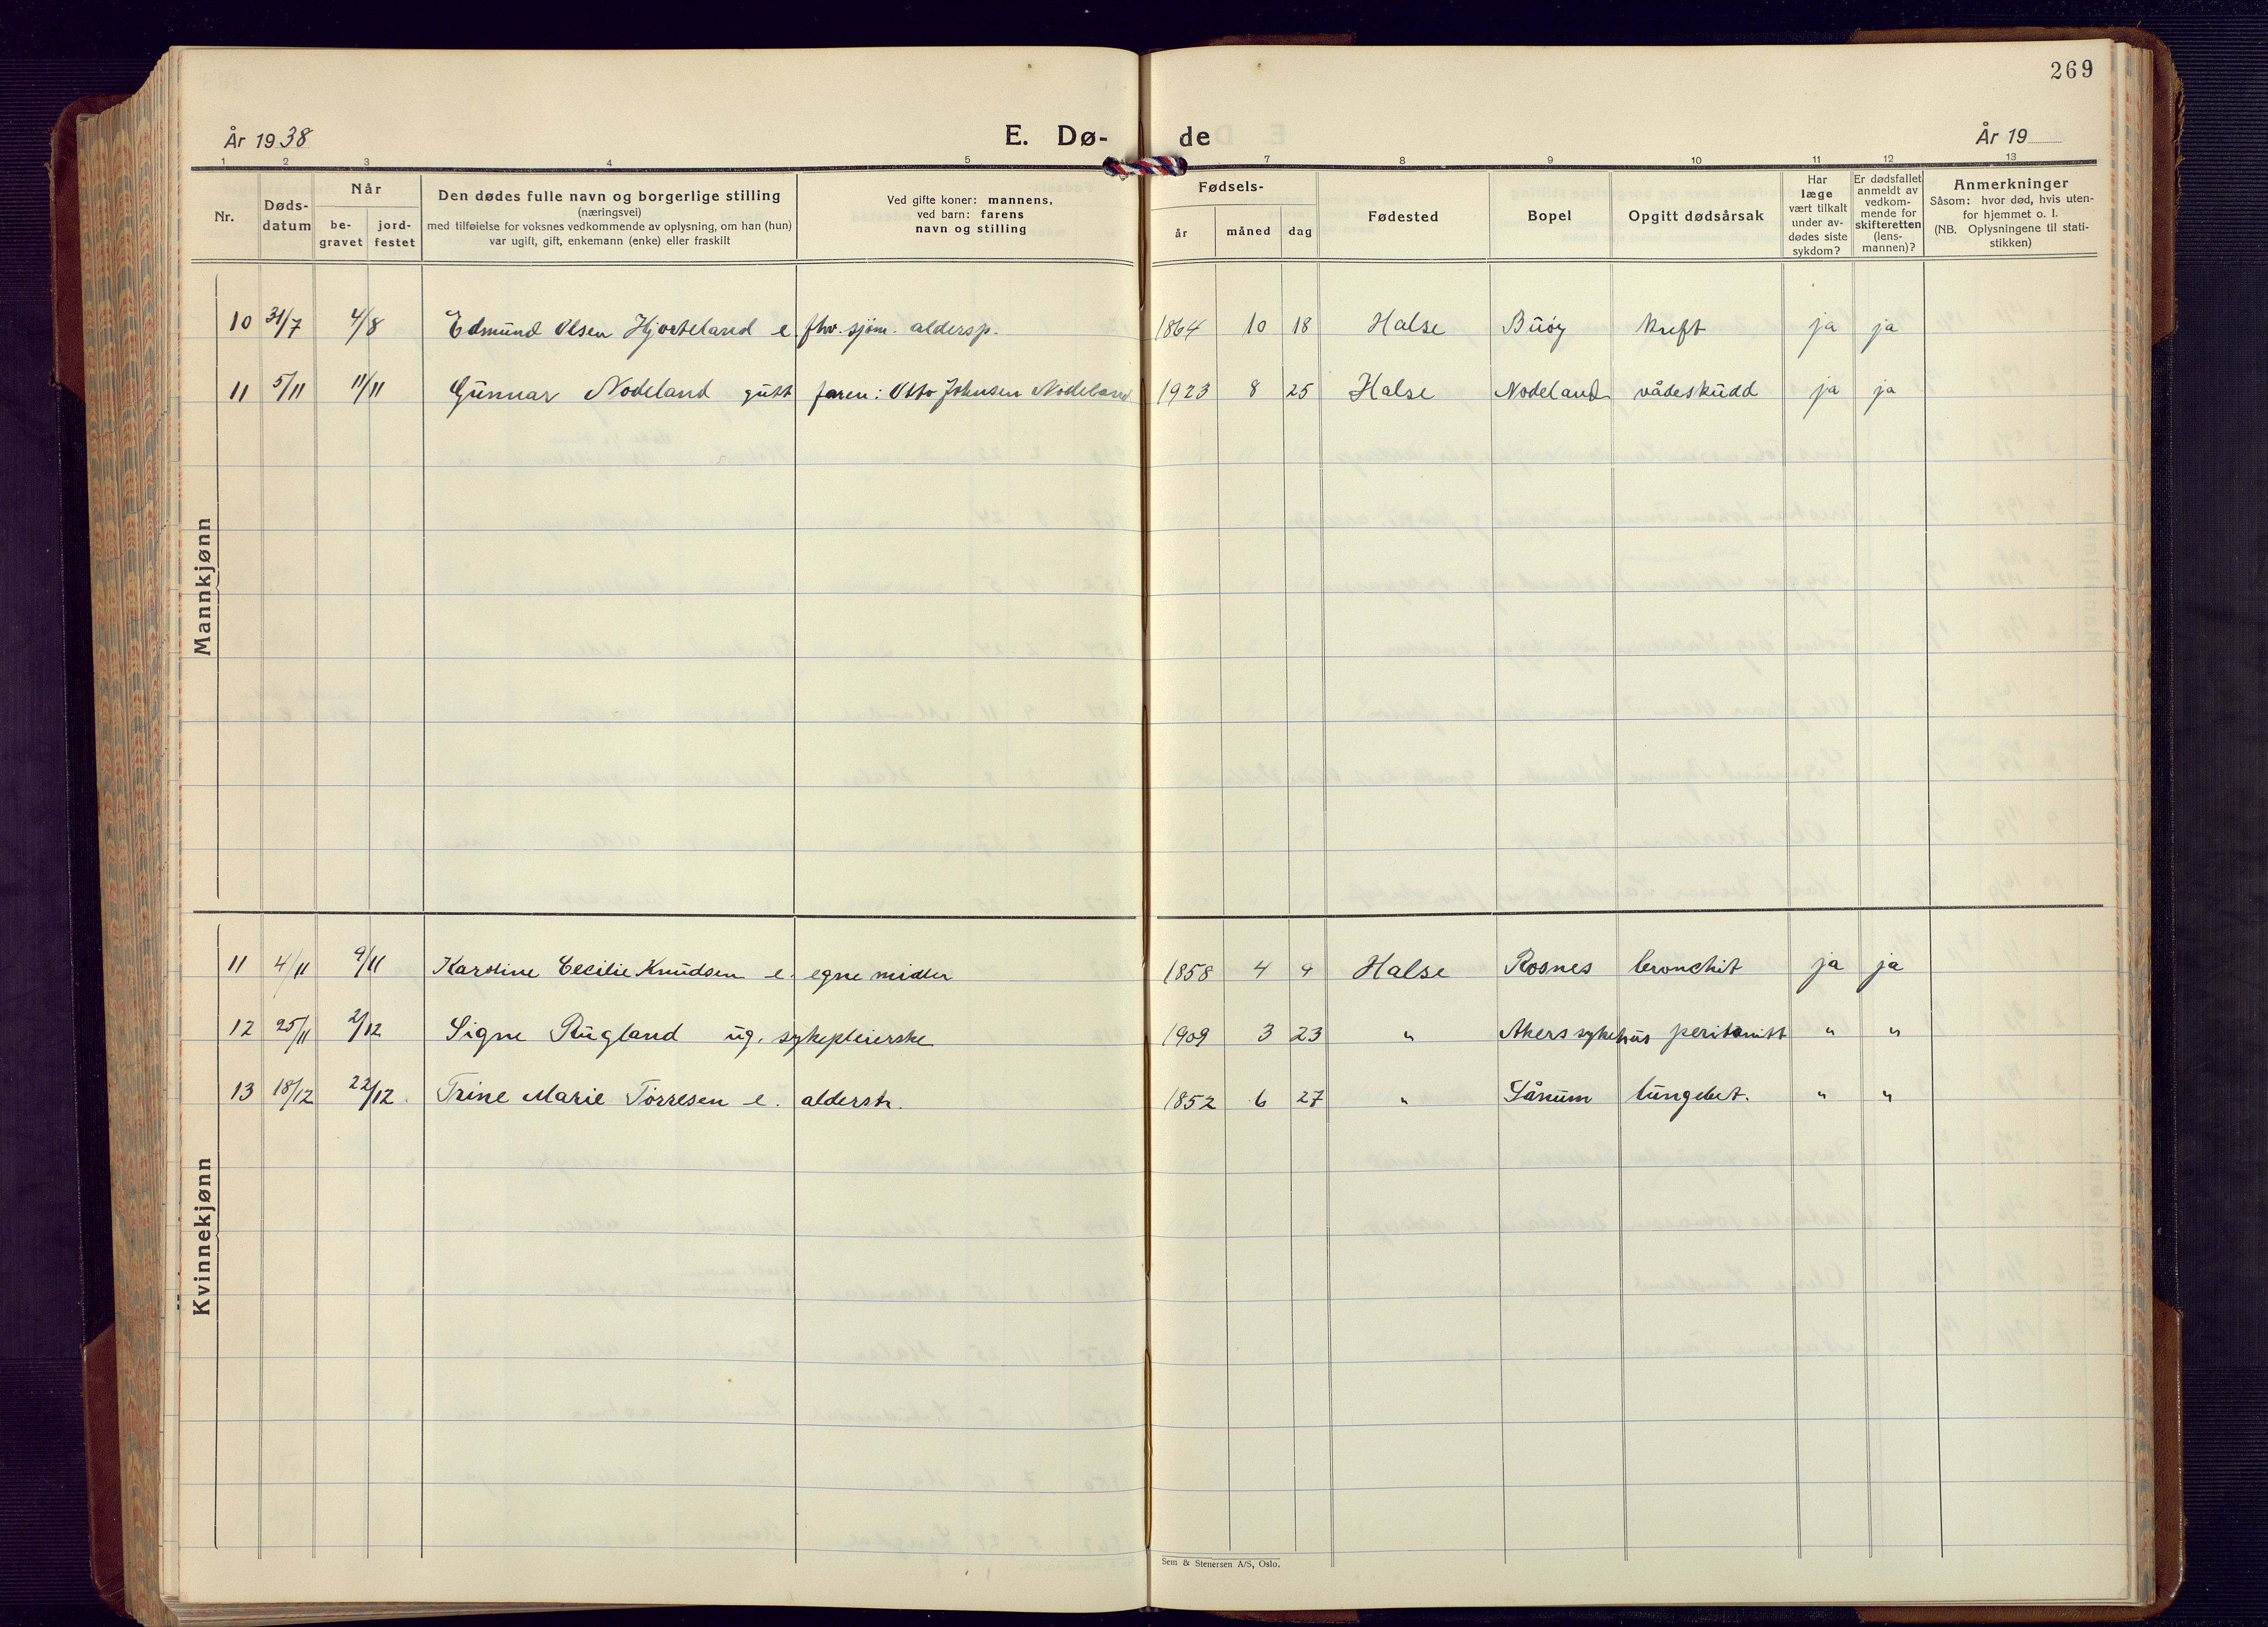 269
År 1938 E. Dø- de År 19
1 2 3 4 5 7 8 9 10 11 12 13
Nr.
Døds-
datum
Når
be-
gravet
jord-
festet
Den dødes fulle navn og borgerlige stilling
(næringsvei)
med tilføielse for voksnes vedkommende av oplysning, om han (hun)
var ugift, gift, enkemann (enke) eller fraskilt
Ved gifte koner: mannens,
ved barn: farens
navn og stilling
Fødsels-
år måned dag
Fødested
Bopel
Opgitt dødsårsak
Har
læge
vært tilkalt
under av-
dødes siste
sykdom?
Er dødsfallet
anmeldt av
vedkom-
mende for
skifteretten
(lens-
mannen)?
Anmerkninger
Såsom: hvor død, hvis uten-
for hjemmet o. l.
(NB. Oplysningene til stati-
stikken)
Mannkjønn
10 31/7 4/8 Edmund Olsen Hjorteland e. fhv. sjøm. aldersp. 1864 10 18 Halse Buøy kreft ja ja
11 5/11 11/11 Gunnar Nodeland gutt faren: Otto Johnsen Nodeland 1923 8 25 Halse Nodeland vådeskudd ja ja
Kvinnekjønn
11 4/11 9/11 Karoline Cecilie Knudsen e. egne midler 1858 4 9 Halse Rosnes bronchit ja ja
12 25/11 2/12 Signe Rugland ug. sykepleierske 1909 3 23 " Akers sykehus peritonitt " "
13 18/12 22/12 Trine Marie Tørresen e. alderstr. 1852 6 27 " Sånum lungebet. " "
Sem & Stenersen A/S, Oslo.